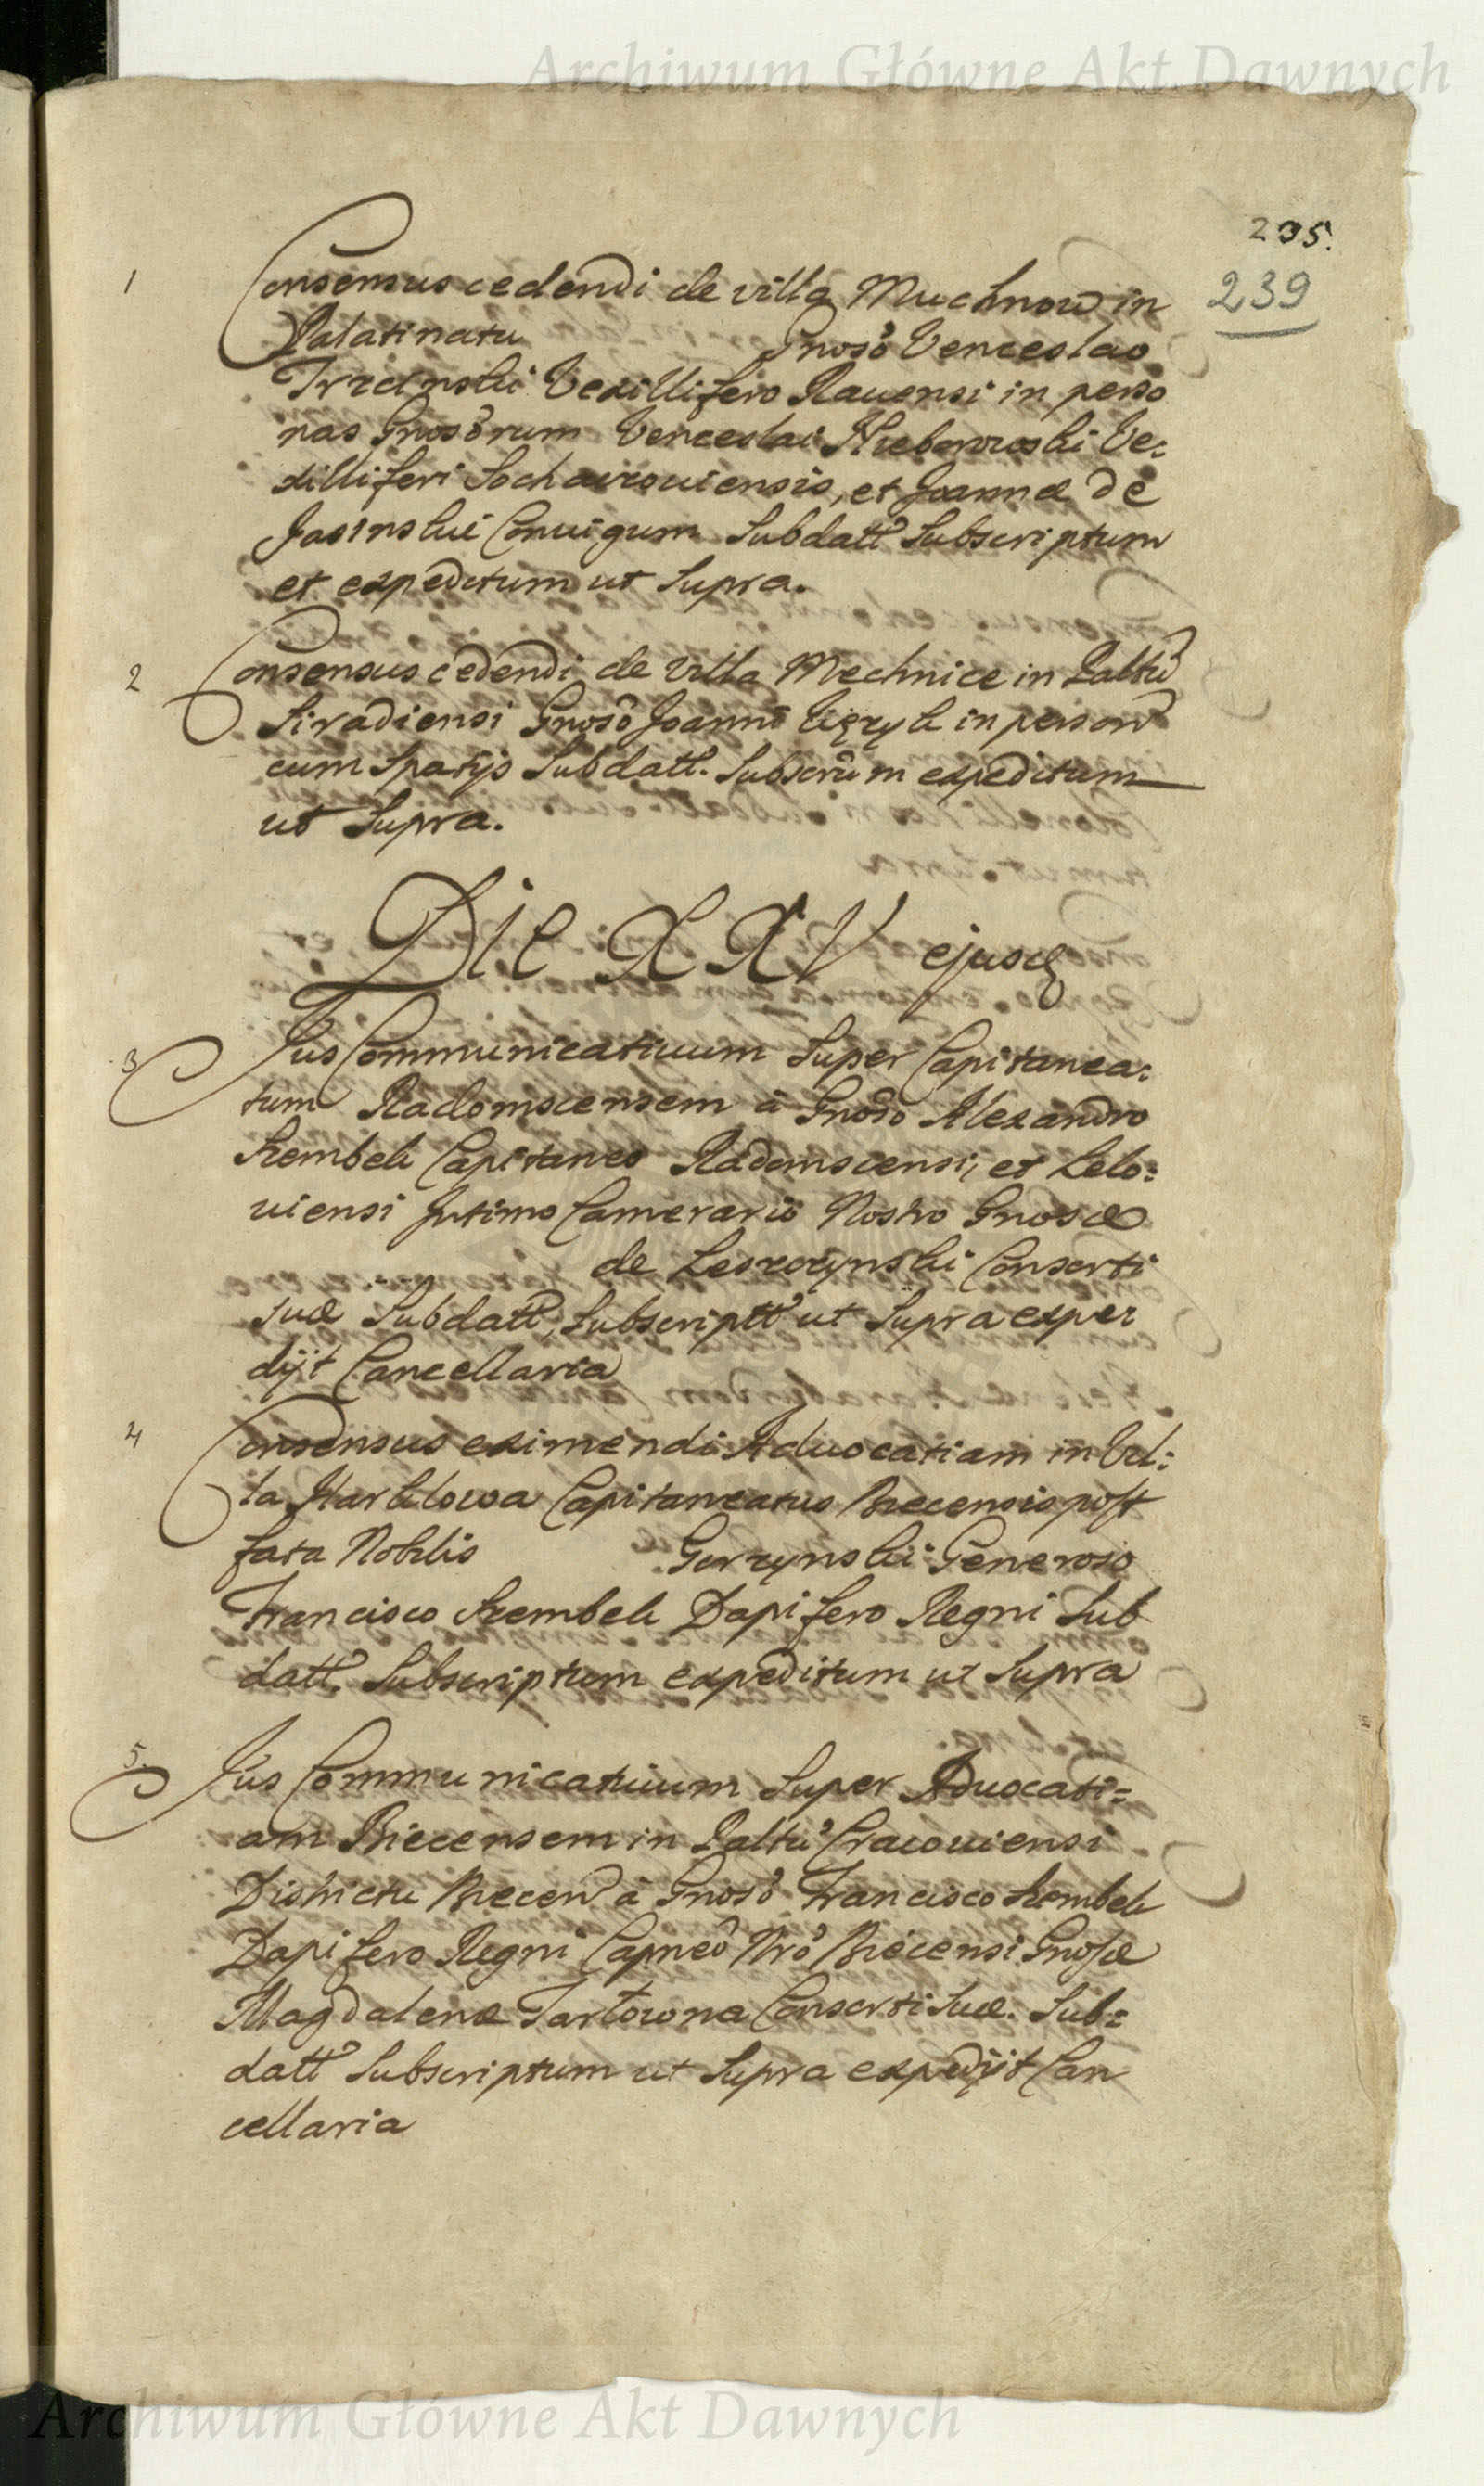 Archiwum Główne Akt Dawnych
235.
239
1 Consensus cedendi de villa Muchnow in
Palatinatu Gnosō Venceslao
Trzcinski Vexillifero Rauensi in perso
nas Gnosōrum Venceslai Nieborowski Ve:
xilliferi Sochaczouiensis, et Joannæ de
Jasinski Coniugum Subdatt Subscriptum
et expeditum ut Supra.
2 Consensus cedendi de Villa Mechnice in Palttu
Siradiensi Gnosō Joanni Wężyk in person
cum Spatijs Subdatt. Subscrūm expeditum
ut Supra.
Die XXV ejusq
3 Jus Communicatiuum Super Capitanea:
tum Radomscensem à Gnosō Alexandro
Szembek Capitaneo Radomscensi, et Lelo:
uiensi Intimo Camerario Nostro Gnosæ
de Leszczynski Consorti
suæ Subdatt, Subscriptt ut Supra expe
dijt Cancellaria
4 Consensus eximendi Aduocatiam in Vil:
la Harklowa Capitaneatus Biecensis post
fata Nobilis Gorzynski Generoso
Francisco Szembek Dapifero Regni Sub
datt. Subscriptum expeditum ut Supra
5. Jus Communicatiuum Super Aduocati=
am Biecensem in Palttu Cracouiensi
Districtu Biecen à Gnosō Francisco Szembek
Dapifero Regni Capneō Nrō Biecensi Gnosæ
Magdalenæ Tarłowna Consorti Suæ. Sub=
datt Subscriptum ut Supra expedijt Can
cellaria
Archiwum Główne Akt Dawnych